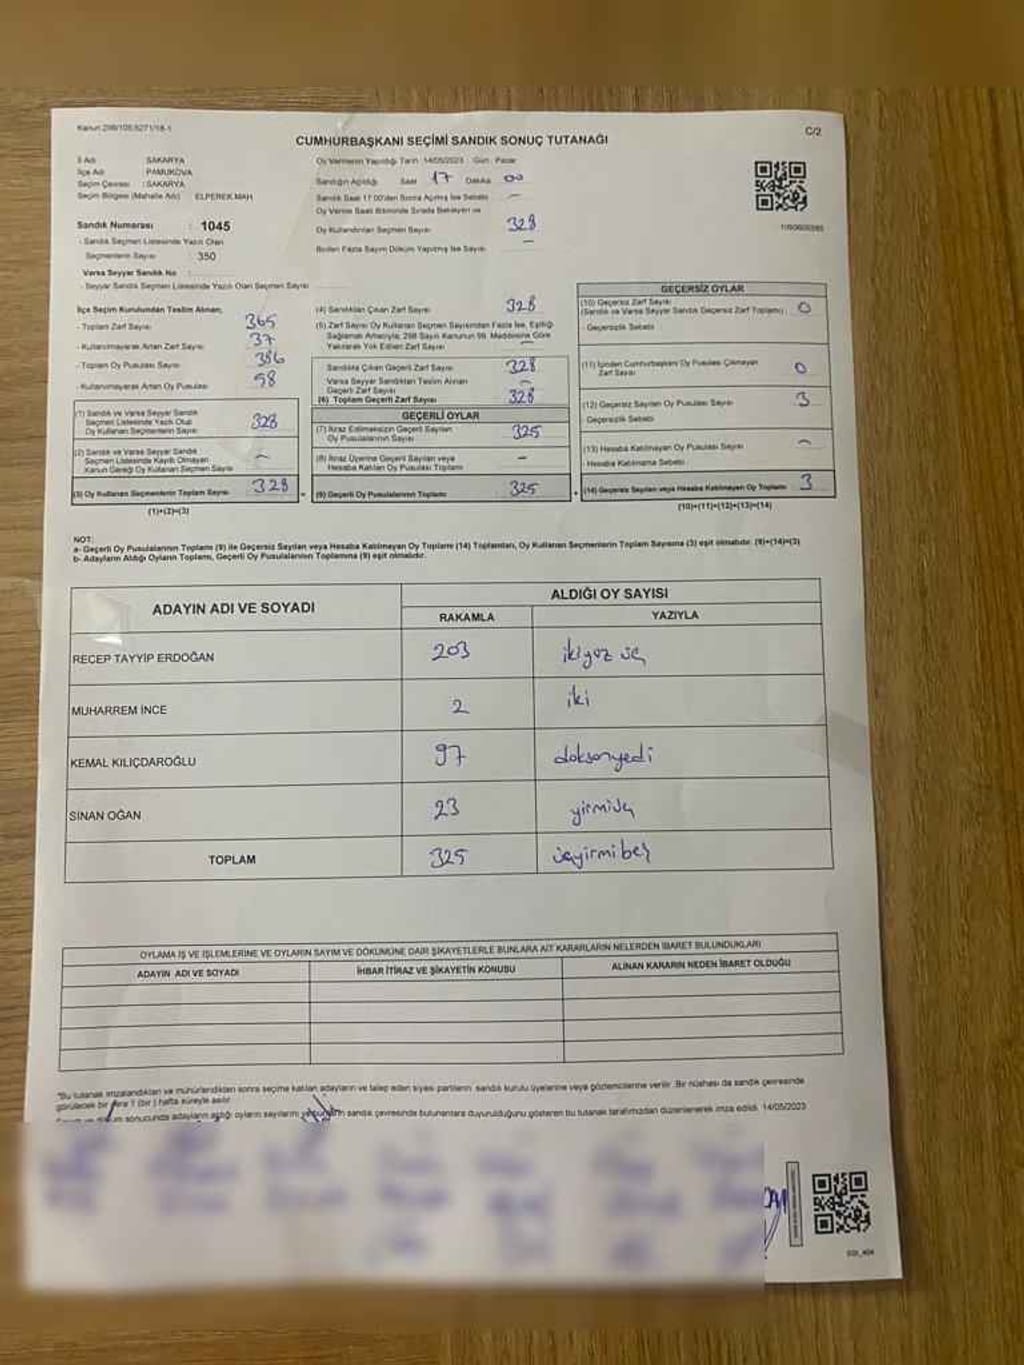 Kanun:298/105;6271/18-1
C/2
CUMHURBAŞKANI SEÇİMİ SANDIK SONUÇ TUTANAĞI
İl Adı : SAKARYA
İlçe Adı : PAMUKOVA
Seçim Çevresi : SAKARYA
Seçim Bölgesi (Mahalle Adı) : ELPEREK MAH
Sandık Numarası : 1045
- Sandık Seçmen Listesinde Yazılı Olan
Seçmenlerin Sayısı : 350
Varsa Seyyar Sandık No :
- Seyyar Sandık Seçmen Listesinde Yazılı Olan Seçmen Sayısı :
Oy Vermenin Yapıldığı Tarih : 14/05/2023 Gün : Pazar
Sandığın Açıldığı Saat 17 Dakika 00
Sandık Saat 17:00'den Sonra Açılmış İse Sebebi : –
Oy Verme Saati Bitiminde Sırada Bekleyen ve
Oy Kullandırılan Seçmen Sayısı : 328
Birden Fazla Sayım Döküm Yapılmış İse Sayısı : –
İlçe Seçim Kurulundan Teslim Alınan;
- Toplam Zarf Sayısı : 365
- Kullanılmayarak Artan Zarf Sayısı : 37
- Toplam Oy Pusulası Sayısı : 386
- Kullanılmayarak Artan Oy Pusulası : 58
(1) Sandık ve Varsa Seyyar Sandık
Seçmen Listesinde Yazılı Olup
Oy Kullanan Seçmenlerin Sayısı 328
(2) Sandık ve Varsa Seyyar Sandık
Seçmen Listesinde Kayıtlı Olmayan
Kanun Gereği Oy Kullanan Seçmen Sayısı –
(3) Oy Kullanan Seçmenlerin Toplam Sayısı 328
(1)+(2)=(3)
(4) Sandıktan Çıkan Zarf Sayısı : 328
(5) Zarf Sayısı Oy Kullanan Seçmen Sayısından Fazla İse, Eşitliği
Sağlamak Amacıyla; 298 Sayılı Kanunun 98. Maddesine Göre
Yakılarak Yok Edilen Zarf Sayısı : –
Sandıkta Çıkan Geçerli Zarf Sayısı : 328
Varsa Seyyar Sandıktan Teslim Alınan
Geçerli Zarf Sayısı : –
(6) Toplam Geçerli Zarf Sayısı : 328
GEÇERLİ OYLAR
(7) İtiraz Edilmeksizin Geçerli Sayılan
Oy Pusulalarının Sayısı : 325
(8) İtiraz Üzerine Geçerli Sayılan veya
Hesaba Katılan Oy Pusulası Toplamı : –
(9) Geçerli Oy Pusulalarının Toplamı : 325
1090600285
GEÇERSİZ OYLAR
(10) Geçersiz Zarf Sayısı
(Sandık ve Varsa Seyyar Sandık Geçersiz Zarf Toplamı) : 0
- Geçersizlik Sebebi :
(11) İçinden Cumhurbaşkanı Oy Pusulası Çıkmayan
Zarf Sayısı : 0
(12) Geçersiz Sayılan Oy Pusulası Sayısı : 3
- Geçersizlik Sebebi :
(13) Hesaba Katılmayan Oy Pusulası Sayısı : –
- Hesaba Katılmama Sebebi :
(14) Geçersiz Sayılan veya Hesaba Katılmayan Oy Toplamı : 3
(10)+(11)+(12)+(13)=(14)
NOT:
a- Geçerli Oy Pusulalarının Toplamı (9) ile Geçersiz Sayılan veya Hesaba Katılmayan Oy Toplamı (14) Toplamları, Oy Kullanan Seçmenlerin Toplam Sayısına (3) eşit olmalıdır. (9)+(14)=(3)
b- Adayların Aldığı Oyların Toplamı, Geçerli Oy Pusulalarının Toplamına (9) eşit olmalıdır.
ADAYIN ADI VE SOYADI
ALDIĞI OY SAYISI
RAKAMLA YAZIYLA
RECEP TAYYİP ERDOĞAN 203 ikiyüz üç
MUHARREM İNCE 2 iki
KEMAL KILIÇDAROĞLU 97 doksanyedi
SİNAN OĞAN 23 yirmiüç
TOPLAM 325 üçyirmibeş
OYLAMA İŞ VE İŞLEMLERİNE VE OYLARIN SAYIM VE DÖKÜMÜNE DAİR ŞİKAYETLERLE BUNLARA AİT KARARLARIN NELERDEN İBARET BULUNDUKLARI
ADAYIN ADI VE SOYADI İHBAR İTİRAZ VE ŞİKAYETİN KONUSU ALINAN KARARIN NEDEN İBARET OLDUĞU
"Bu tutanak imzalandıktan ve mühürlendikten sonra seçime katılan adayların ve talep eden siyasi partilerin sandık kurulu üyelerine veya gözlemcilerine verilir. Bir nüshası da sandık çevresinde
görülecek bir yere 1 (bir) hafta süreyle asılır.
sonucunda adayların aldığı oyların sayılarını sandık çevresinde bulunanlara duyurulduğunu gösteren bu tutanak tarafımızdan düzenlenerek imza edildi. 14/05/2023